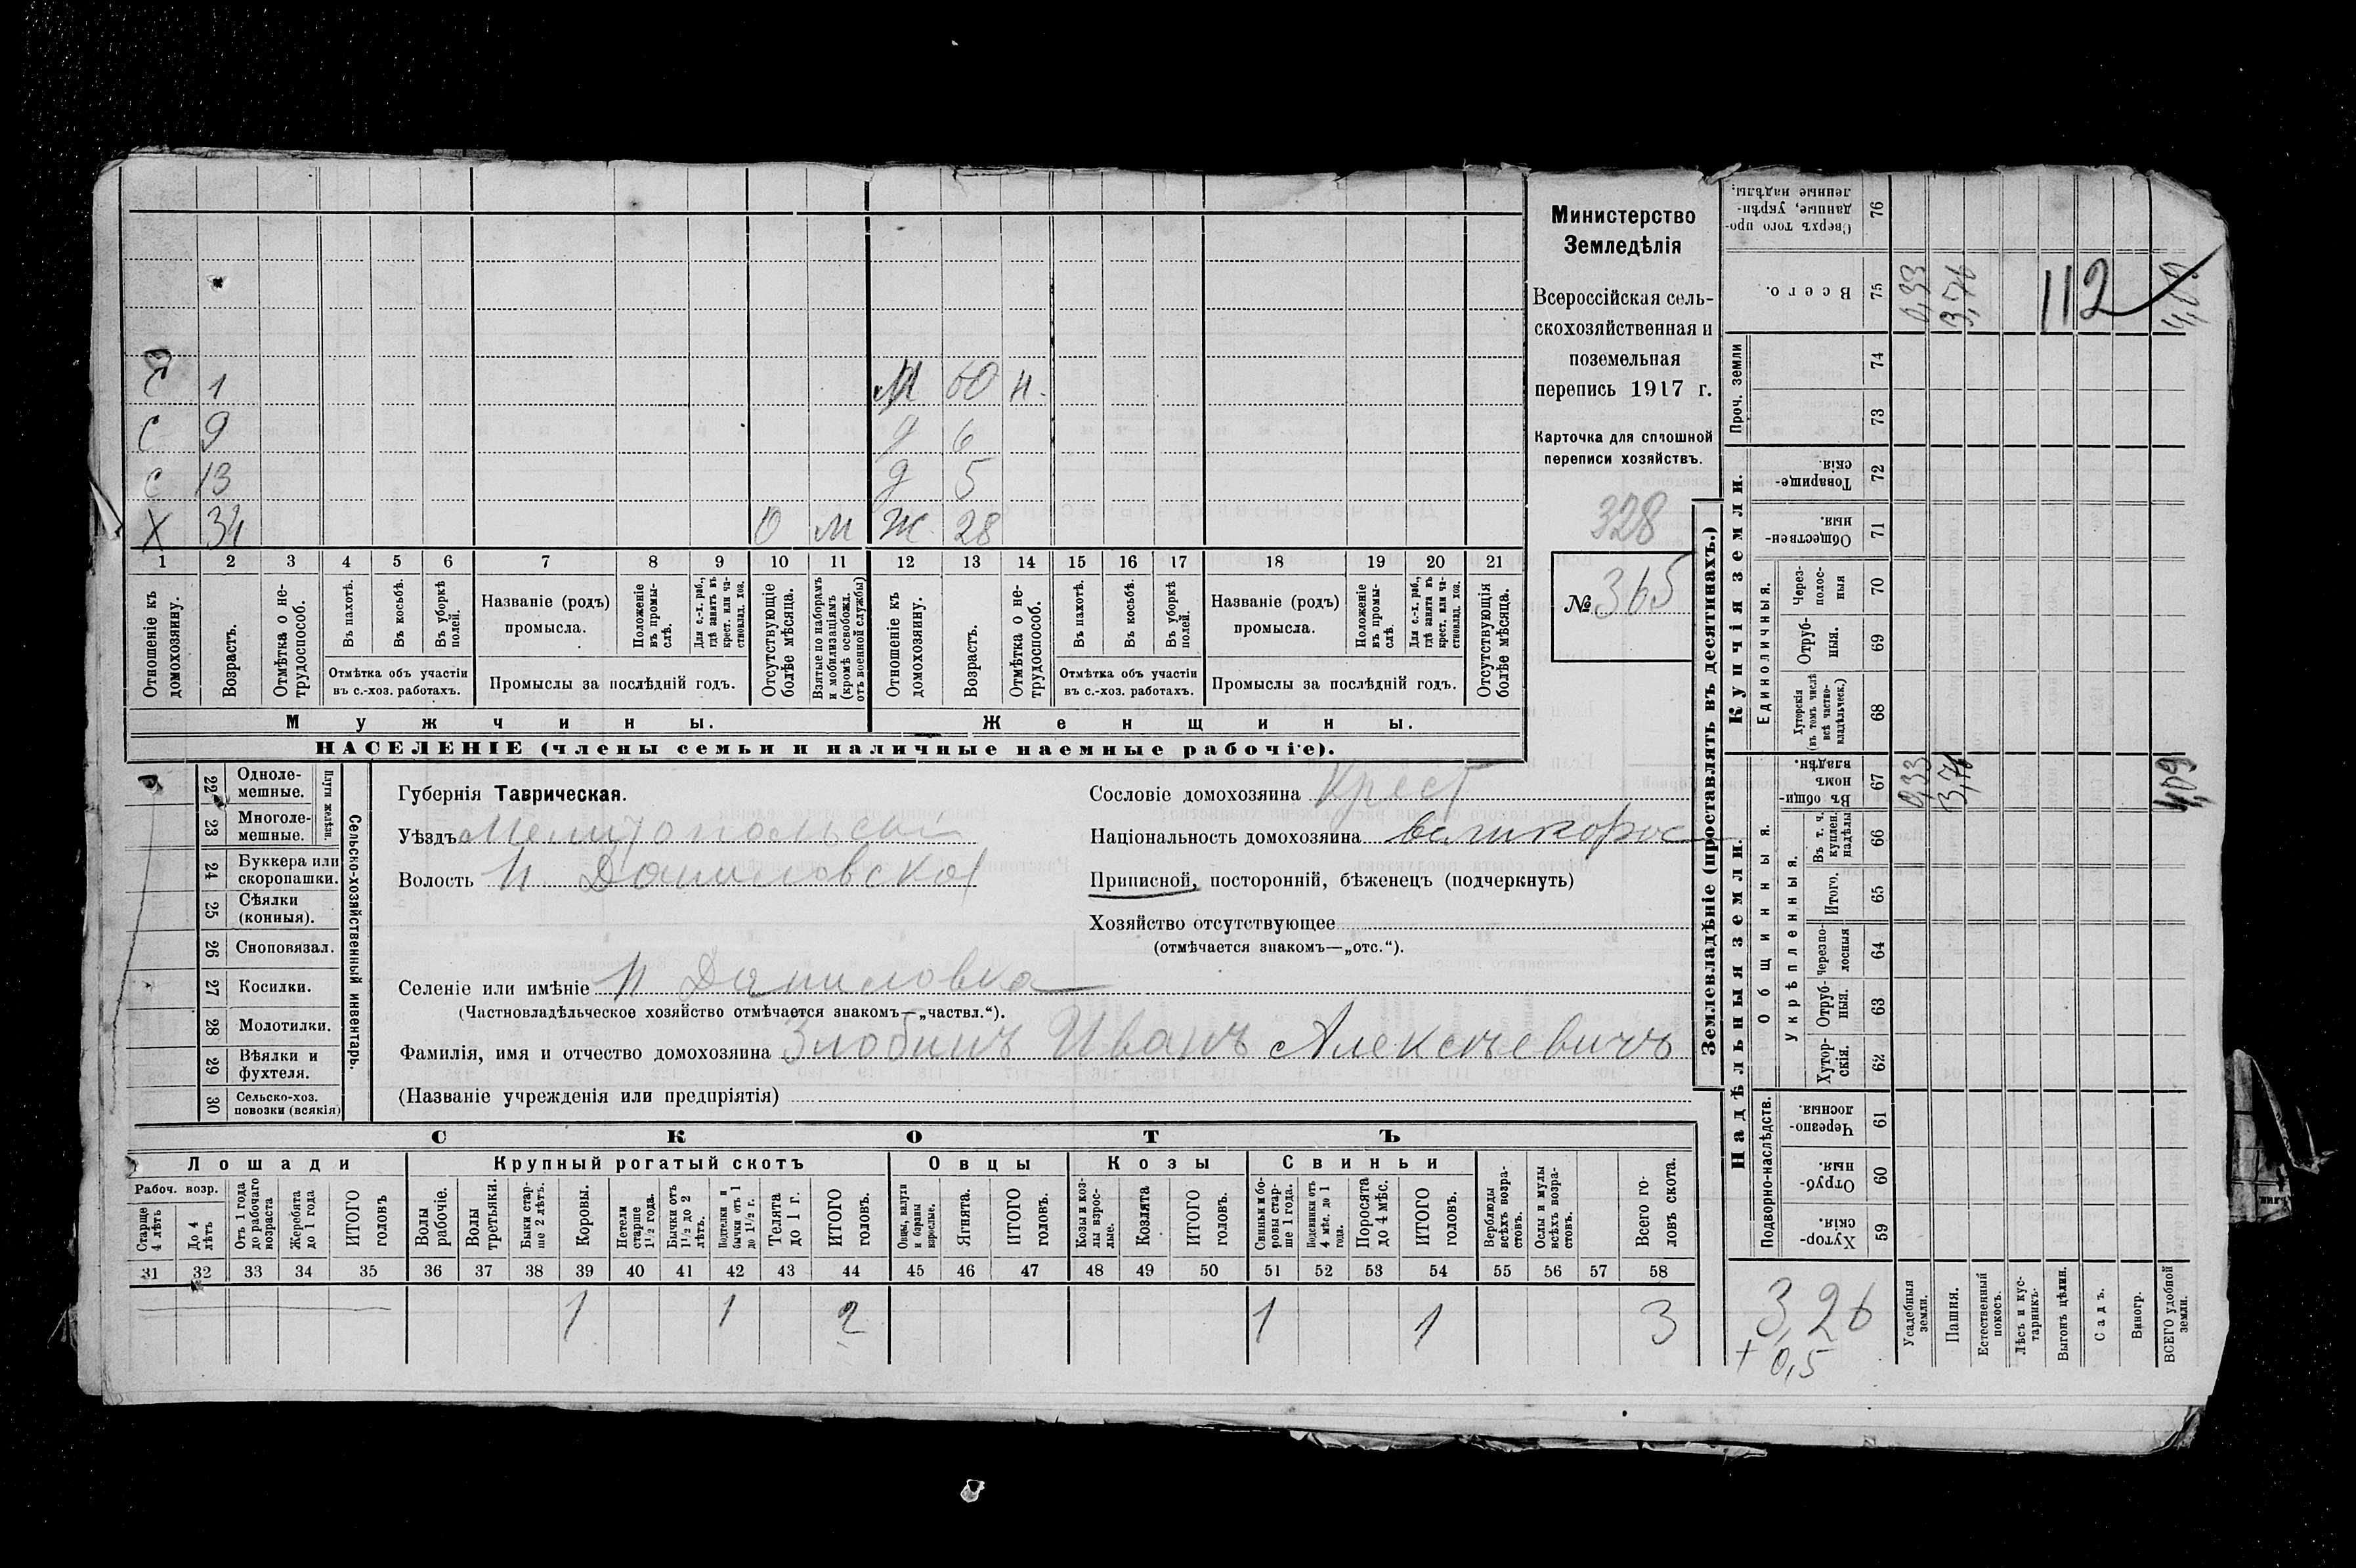 С 1 М 60 н.
С 9 д 6
С 13 д 5
Х 34 О М Ж 28
1 2 3 4 5 6 7 8 9 10 11 12 13 14 15 16 17 18 19 20 21
Отношеніе къ домохозяину.
Возрастъ.
Отмѣтка о не-трудоспособ.
Въ пахотѣ.
Въ косьбѣ.
Въ уборкѣ полей.
Отмѣтка объ участіи
въ с.-хоз. работахъ.
Названіе (родъ)
промысла.
Положеніе въ промы-слѣ.
Для с.-х. раб., гдѣ занятъ въ крест. или ча-стновлад. хоз.
Промыслы за послѣдній годъ.
Отсутствующіе болѣе мѣсяца.
Взятые по наборамъ и мобилизаціямъ (кромѣ освобожд. отъ военной службы)
Отношеніе къ домохозяину.
Возрастъ.
Отмѣтка о не-трудоспособ.
Въ пахотѣ.
Въ косьбѣ.
Въ уборкѣ полей.
Отмѣтка объ участіи
въ с.-хоз. работахъ.
Названіе (родъ)
промысла.
Положеніе въ промы-слѣ.
Для с.-х. раб., гдѣ занята въ крест. или ча-стновлад. хоз.
Промыслы за послѣдній годъ.
Отсутствующія болѣе мѣсяца.
Мужчины.
Женщины.
НАСЕЛЕНІЕ (члены семьи и наличные наемные рабочіе).
Министерство
Земледѣлія
Всероссійская сель-
скохозяйственная и
поземельная
перепись 1917 г.
Карточка для сплошной
переписи хозяйствъ.
328
№ 365
22 Одноле-мешные.
23 Многоле-мешные.
Плуги желѣзн.
24 Буккера или скоропашки.
25 Сѣялки (конныя).
26 Сноповязал.
27 Косилки.
28 Молотилки.
29 Вѣялки и фухтеля.
30 Сельско-хоз. повозки (всякія)
Сельско-хозяйственный инвентарь.
Губернія Таврическая.
Уѣздъ Мелитопольскій
Волость Н Даниловская
Селеніе или имѣніе Н Даниловка
(Частновладѣльческое хозяйство отмѣчается знакомъ—„частвл.“).
Фамилія, имя и отчество домохозяина Злобинъ Иванъ Алексѣевичъ
(Названіе учрежденія или предпріятія)
Сословіе домохозяина Крест
Національность домохозяина великорос
Приписной, посторонній, бѣженецъ (подчеркнуть)
Хозяйство отсутствующее
(отмѣчается знакомъ—„отс.“).
СКОТЪ
Лошади
Крупный рогатый скотъ
Овцы
Козы
Свиньи
Рабоч. возр.
Старше 4 лѣтъ
До 4 лѣтъ
Отъ 1 года до рабочаго возраста
Жеребята до 1 года
ИТОГО головъ
Волы рабочіе.
Волы третьяки.
Быки стар-ше 2 лѣтъ.
Коровы.
Нетели старше 1½ года.
Бычки отъ 1½ до 2 лѣтъ.
Подтелки и бычки отъ 1 до 1½ г.
Телята до 1 г.
ИТОГО головъ.
Овцы, валухи и бараны взрослые.
Ягнята.
ИТОГО головъ.
Козы и коз-лы взрос-лые.
Козлята
ИТОГО головъ.
Свиньи и бо-ровы стар-ше 1 года.
Подсвинки отъ 4 мѣс. до 1 года.
Поросята до 4 мѣс.
ИТОГО головъ.
Верблюды всѣхъ возра-стовъ.
Ослы и мулы всѣхъ возра-стовъ.
Всего го-ловъ скота.
31 32 33 34 35 36 37 38 39 40 41 42 43 44 45 46 47 48 49 50 51 52 53 54 55 56 57 58
1 1 2 1 1 3
Землевладѣніе (проставлять въ десятинахъ.)
Надѣльныя земли.
Купчія земли.
Проч. земли
Подворно-наслѣдств.
Общинныя.
Укрѣпленныя.
Единоличныя.
Сверхъ того про-данные, укрѣп-ленные надѣлы. 76
Всего. 75
74
73
Товарище-скія. 72
Обществен-ныя. 71
Через-полос-ныя 70
Отруб-ныя. 69
Хуторскія (въ томъ числѣ всѣ частно-владѣльческ.) 68
Въ общи-номъ владѣн. 67
Въ т. ч. куплен. надѣлы 66
Итого. 65
Черезпо-лосныя 64
Отруб-ныя. 63
Хутор-скія. 62
Черезпо-лосныя. 61
Отруб-ныя. 60
Хутор-скія. 59
0,33 3,76 112
0,33 3,76 4,09
3,26
+ 0,5
Усадебныя земли.
Пашня.
Естественный покосъ.
Лѣсъ и кус-тарникъ.
Выгонъ цѣлин.
Садъ.
Виногр.
ВСЕГО удобной земли.